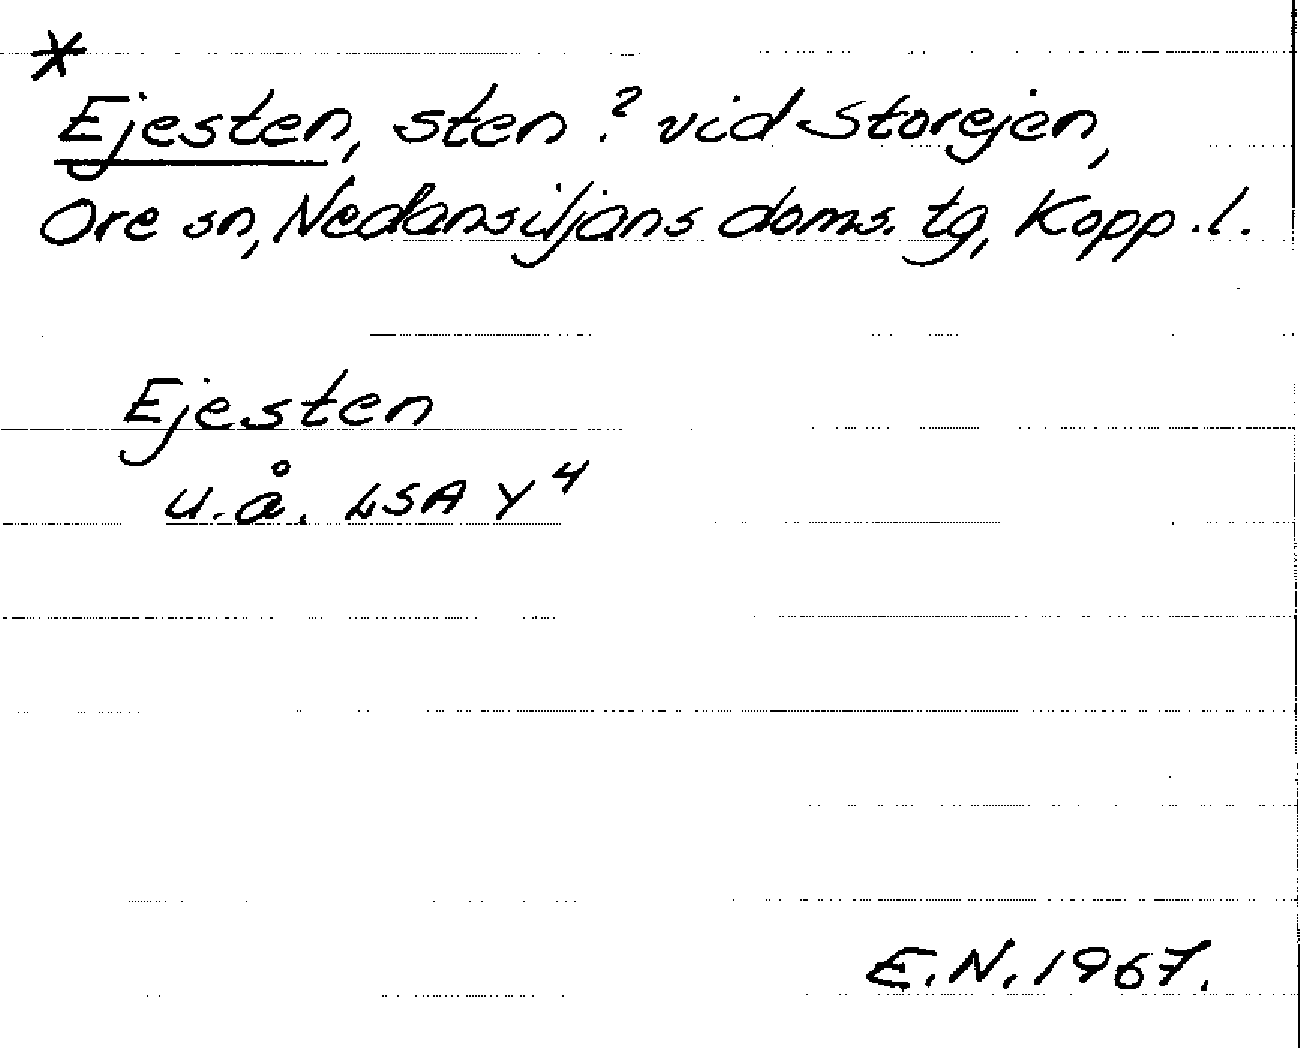 *
Ejesten, sten ? vid Storejen,
Ore sn, Nedansiljans doms. tg, Kopp. l.
Ejesten
u. å. LSA Y⁴
E. N. 1967.